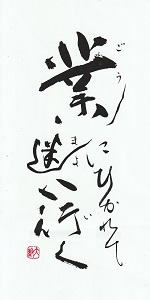 業
ごう
にひかれて
迷い行く
まよ